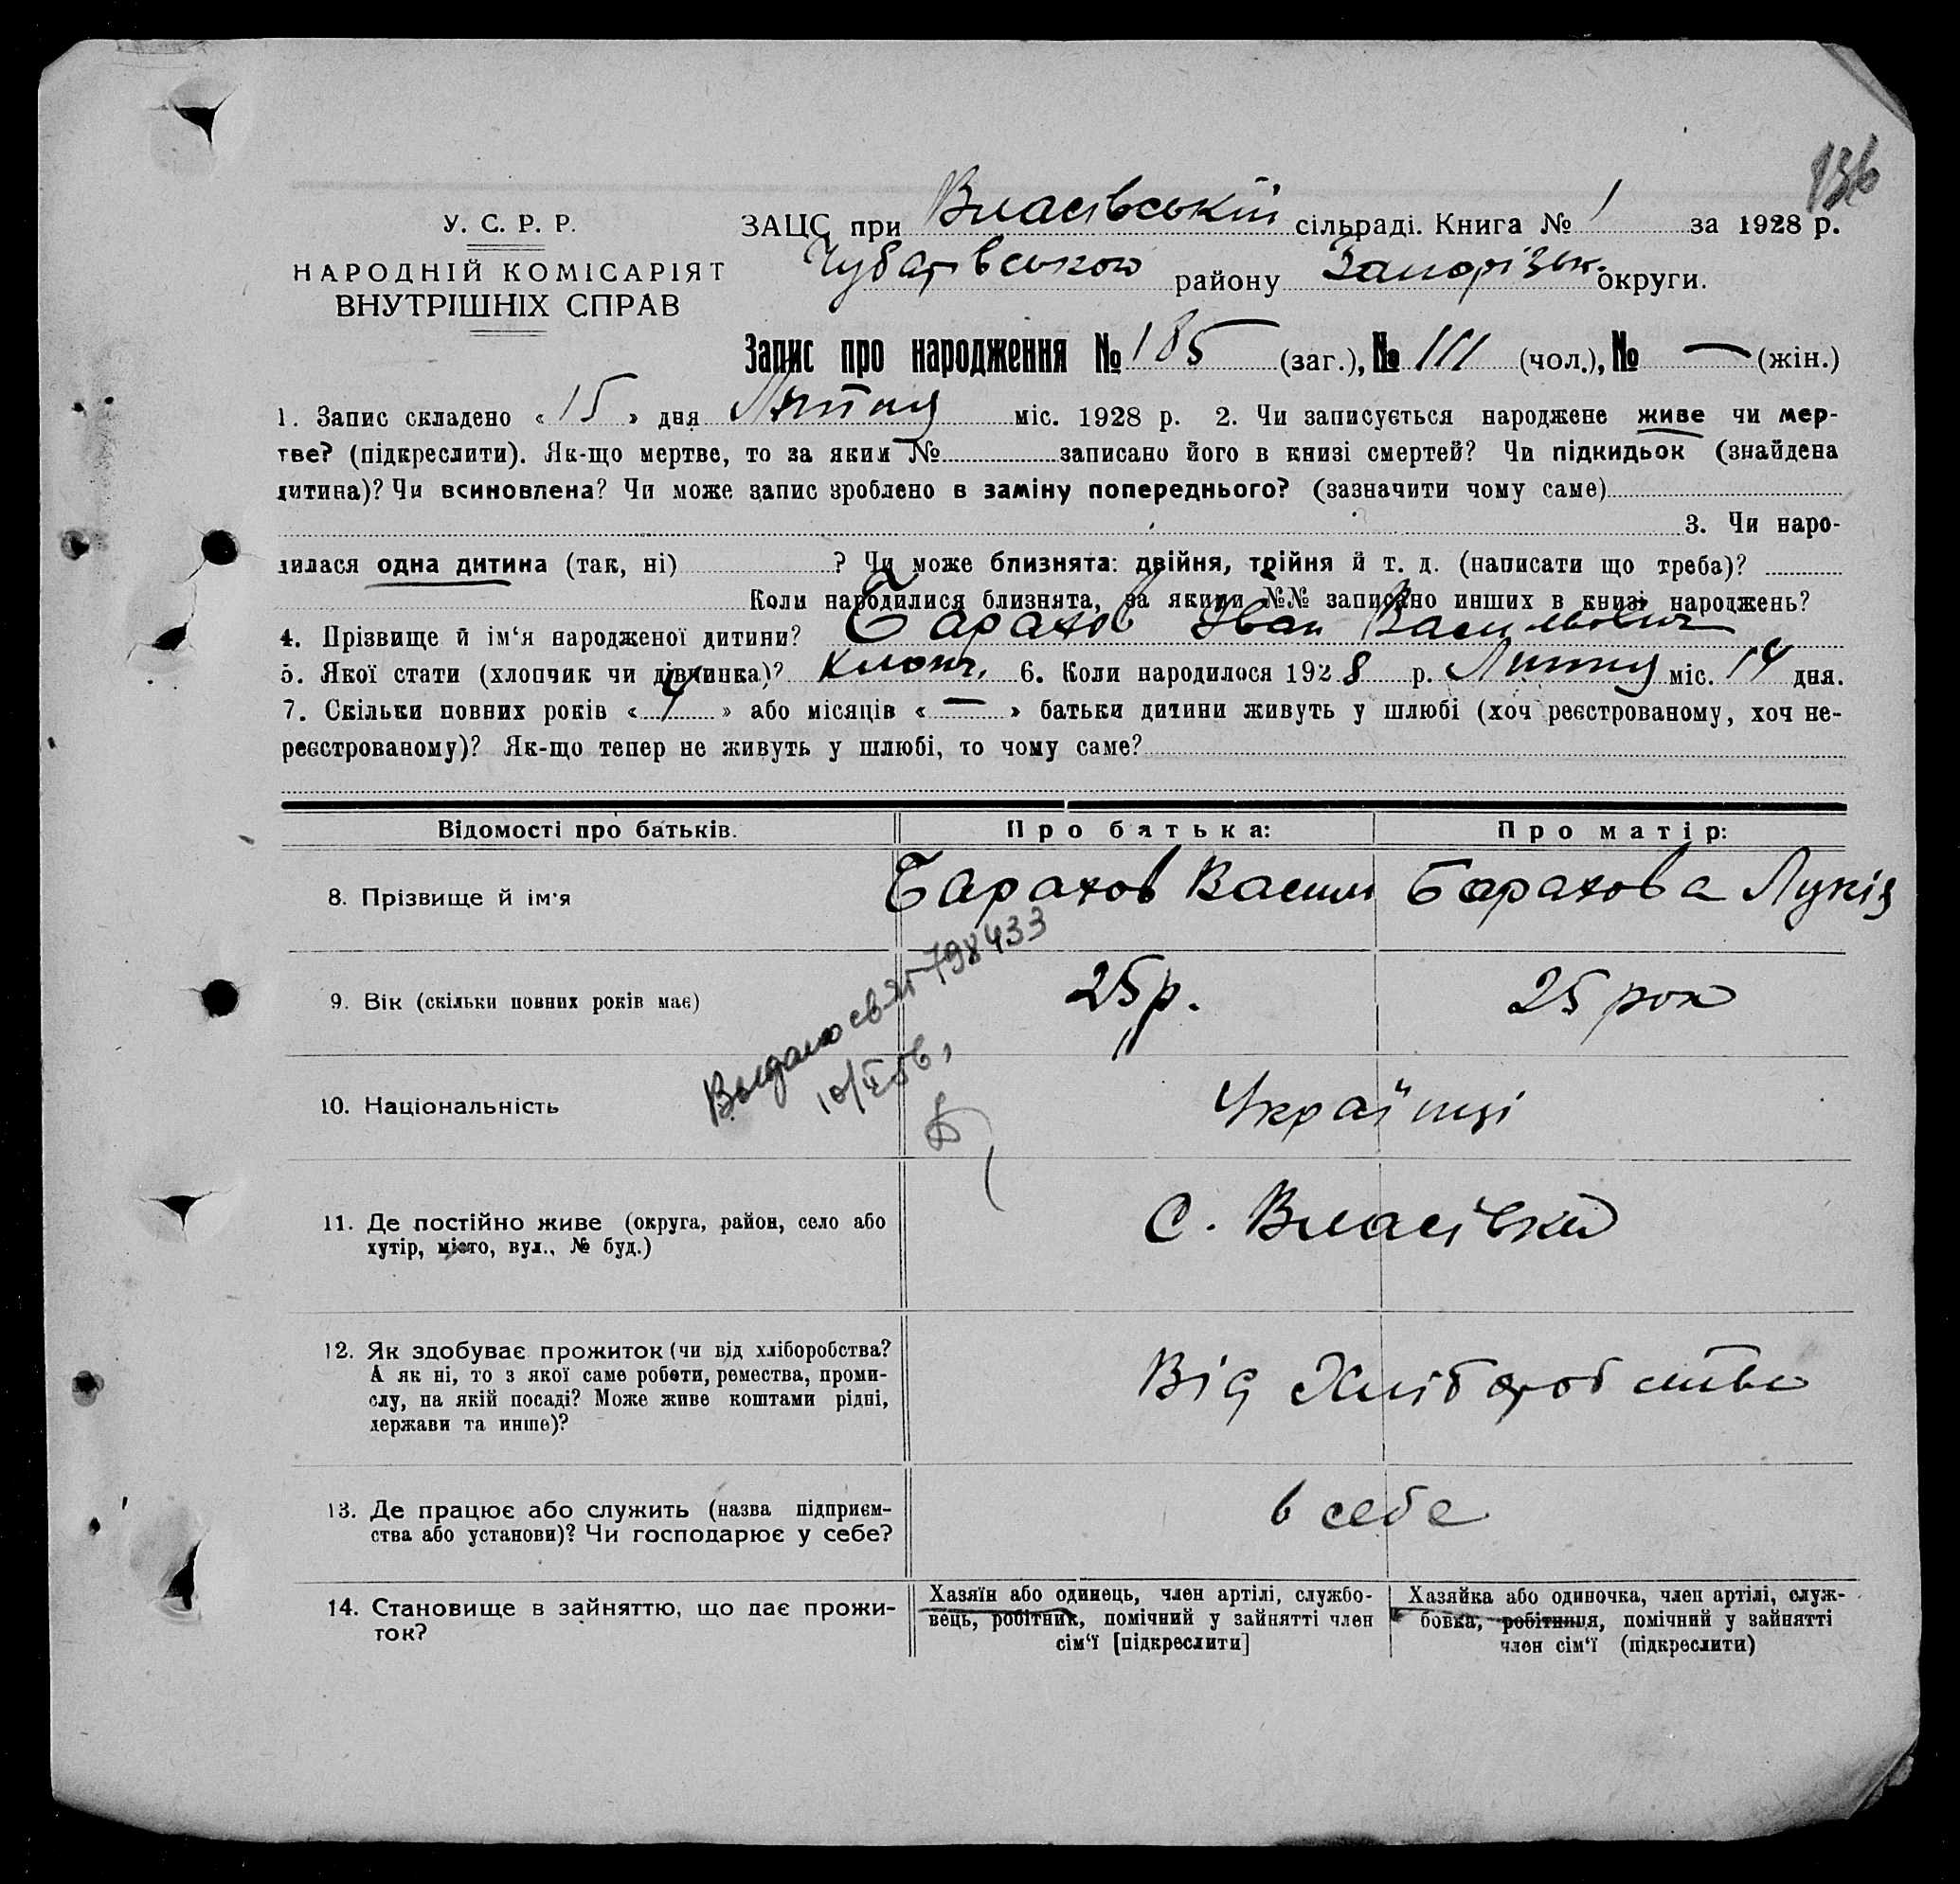 136
У. С. Р. Р.
НАРОДНІЙ КОМІСАРІЯТ
ВНУТРІШНІХ СПРАВ
ЗАЦС при Власівській сільраді. Книга № 1 за 1928 р.
Чубарівського району Запорізьк. округи.
Запис про народження № 185 (заг.), № 111 (чол.), № — (жін.)
1. Запис складено « 15 » дня Липня міс. 1928 р. 2. Чи записується народжене живе чи мер-
тве? (підкреслити). Як-що мертве, то за яким № записано його в книзі смертей? Чи підкидьок (знайдена
дитина)? Чи всиновлена? Чи може запис зроблено в заміну попереднього? (зазначити чому саме)
3. Чи наро-
дилася одна дитина (так, ні) ? Чи може близнята: двійня, трійня й т. д. (написати що треба)?
Коли народилися близнята, за якими №№ записано инших в книзі народжень?
4. Прізвище й ім‘я народженої дитини? Барахов Іван Васильович
5. Якої стати (хлопчик чи дівчинка)? хлопч. 6. Коли народилося 1928 р. Липня міс. 14 дня.
7. Скільки повних років « 4 » або місяців « — » батьки дитини живуть у шлюбі (хоч реєстрованому, хоч не-
реєстрованому)? Як-що тепер не живуть у шлюбі, то чому саме?
Відомості про батьків. Про батька: Про матір:
8. Прізвище й ім‘я Барахов Василь Барахова Лукія
9. Вік (скільки повних років має) 25 р. 25 рок
Выдано св-во 798433
10. Національність Українці
11. Де постійно живе (округа, район, село або
хутір, місто, вул., № буд.)
с. Власівка
12. Як здобуває прожиток (чи від хліборобства?
А як ні, то з якої саме роботи, ремества, проми-
слу, на якій посаді? Може живе коштами рідні,
держави та инше)?
Від Хліборобства
13. Де працює або служить (назва підприєм-
ства або установи)? Чи господарює у себе?
в себе
14. Становище в зайняттю, що дає прожи-
ток?
Хазяїн або одинець, член артілі, службо-
вець, робітник, помічний у зайнятті член
сім‘ї [підкреслити]
Хазяйка або одиночка, член артілі, служ-
бовка, робітниця, помічний у зайнятті
член сім‘ї (підкреслити)